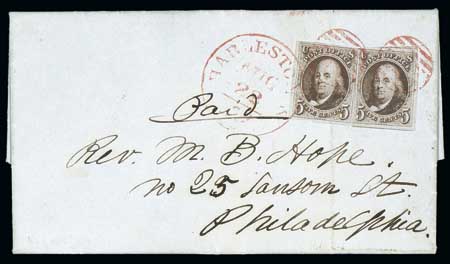 CHARLESTON
AUG
23
POST OFFICE POST OFFICE
5 FIVE CENTS 5 5 FIVE CENTS 5
Paid
Rev. M. B. Hope.
no 25 Sansom St.
Philadelphia.